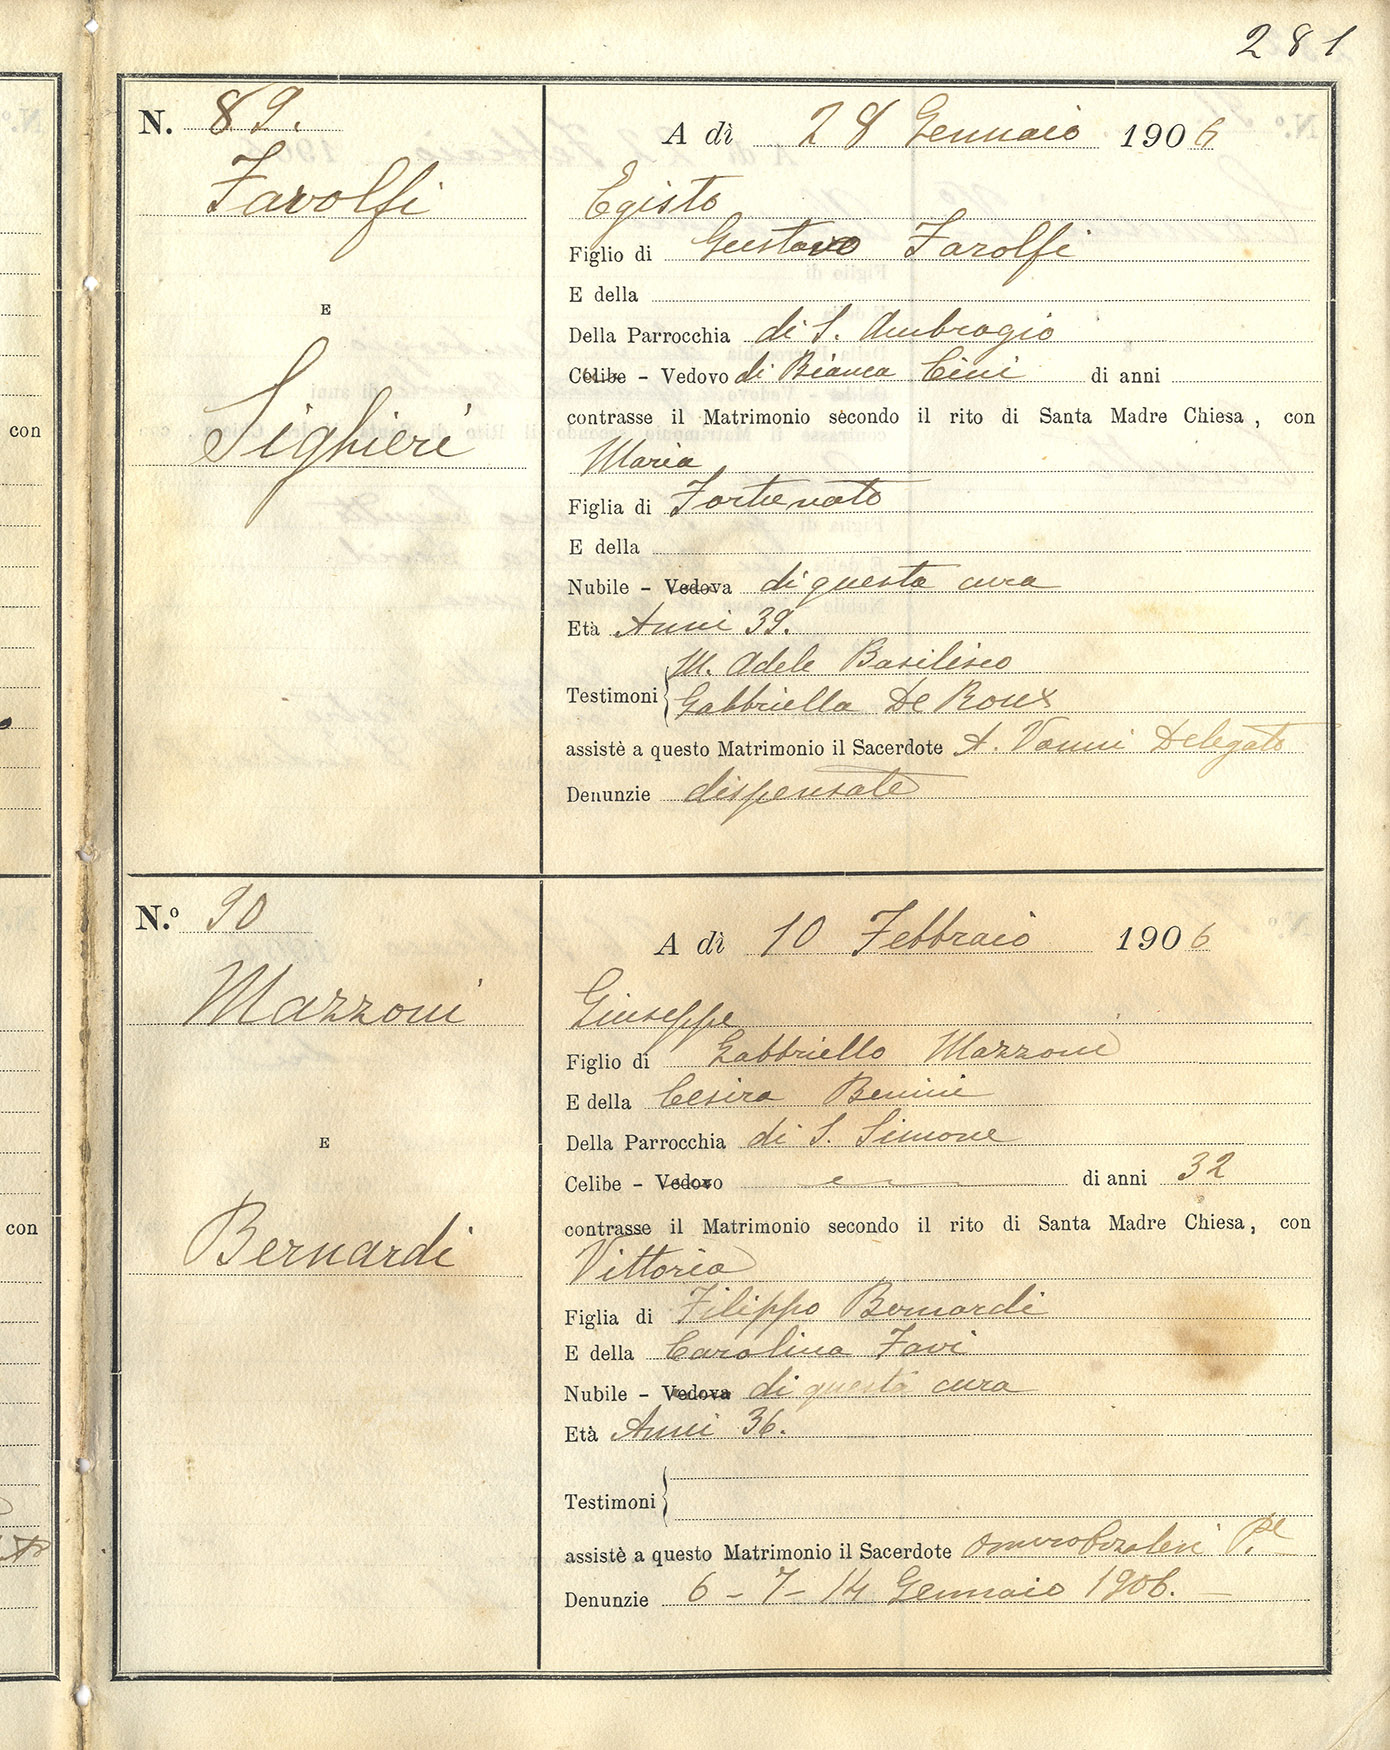 281
N. 89.
Farolfi
E
Sighieri
A dì 28 Gennaio 1906
Egisto
Figlio di Gustavo Farolfi
E della
Della Parrocchia di S. Ambrogio
Celibe - Vedovo di Bianca Cini di anni
contrasse il Matrimonio secondo il rito di Santa Madre Chiesa, con
Maria
Figlia di Fortunato
E della
Nubile - Vedova di questa cura
Età Anni 39.
M. Adele Basilisco
Testimoni
Gabbriella De Roux
assistè a questo Matrimonio il Sacerdote A. Vanni Delegato
Denunzie dispensate
N.º 90
Mazzoni
E
Bernardi
A dì 10 Febbraio 1906
Giuseppe
Figlio di Gabbriello Mazzoni
E della Cesira Benini
Della Parrocchia di S. Simone
Celibe - Vedovo di anni 32
contrasse il Matrimonio secondo il rito di Santa Madre Chiesa, con
Vittoria
Figlia di Filippo Bernardi
E della Carolina Favi
Nubile - Vedova di questa cura
Età Anni 36.
Testimoni
assistè a questo Matrimonio il Sacerdote
Denunzie 6 - 7 - 14 Gennaio 1906.
con
con